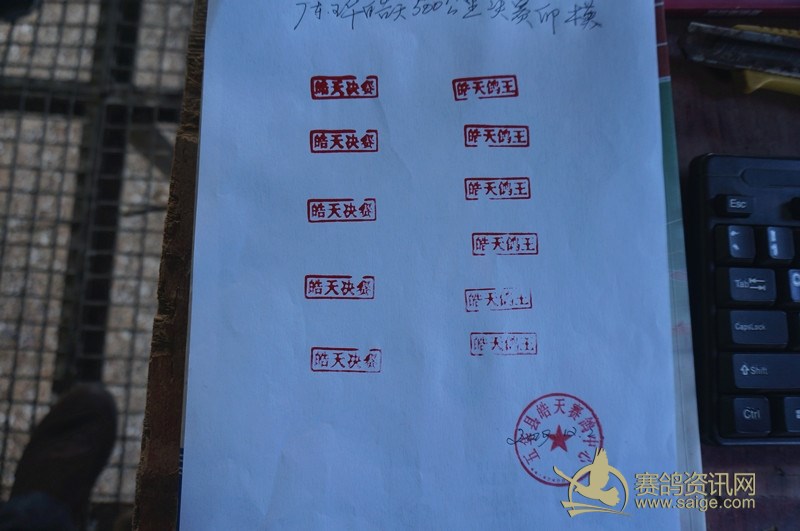 广东五华皓天500公里决赛印模
皓天决赛 皓天鸽王
皓天决赛 皓天鸽王
皓天决赛 皓天鸽王
皓天决赛 皓天鸽王
皓天鸽王
皓天决赛 皓天鸽王
五华县皓天赛鸽中心
Esc
Tab
CapsLock
Shift
Ctrl
赛鸽资讯网
www.saige.com